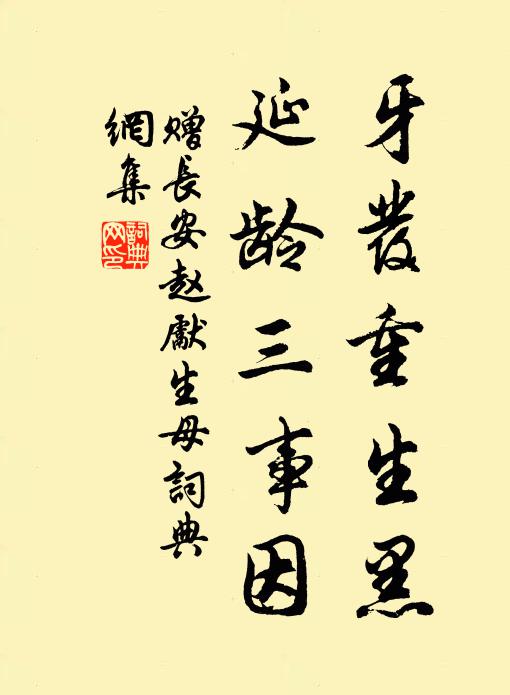 牙發重生黑
延龄三事因
赠長安赵獻生母詞典
網集
詞典
网印